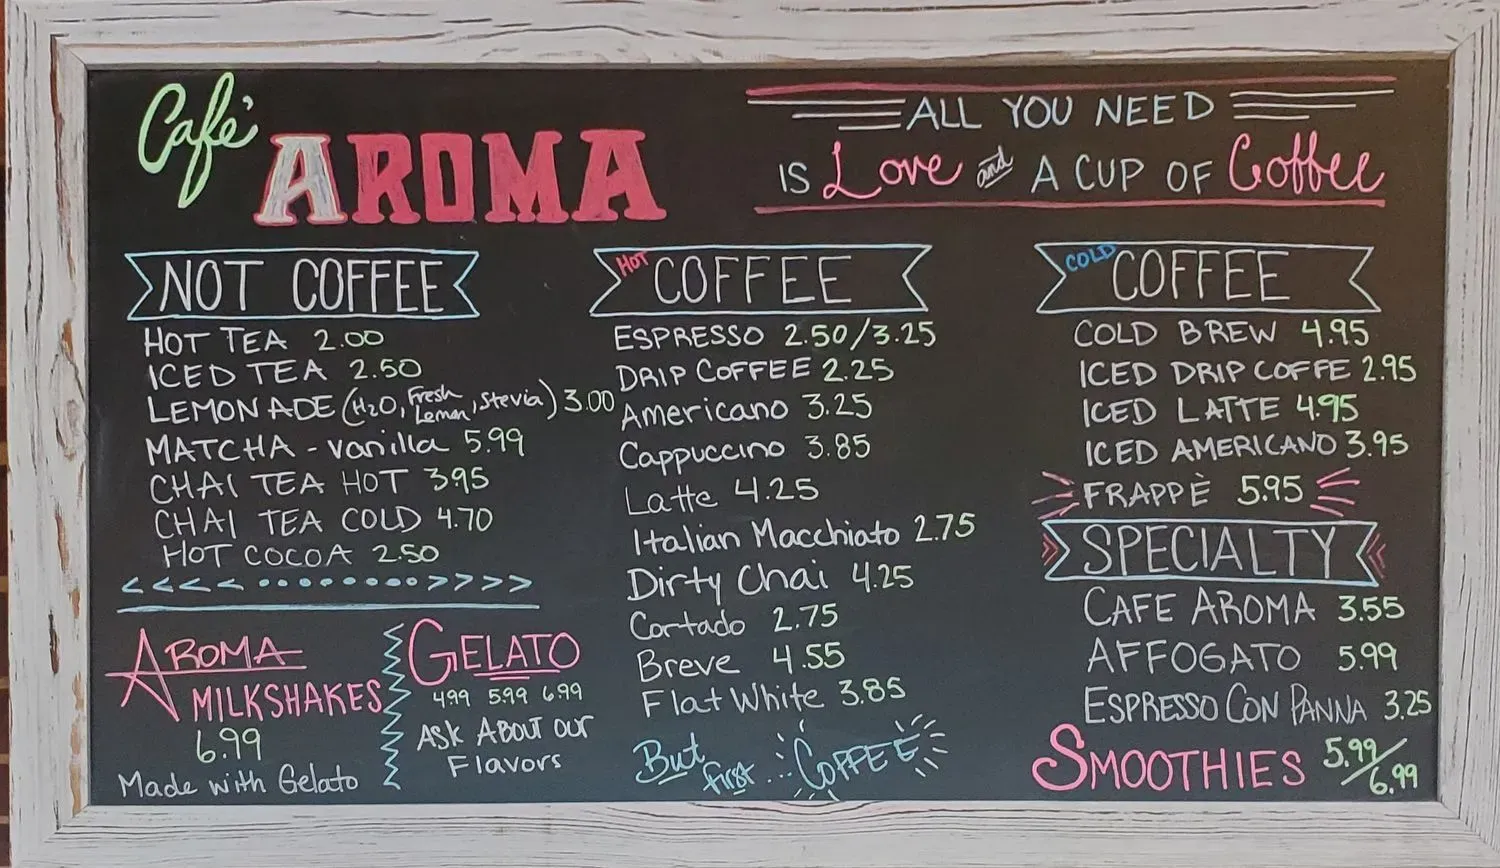 Café AROMA
ALL YOU NEED
IS Love and A CUP OF Coffee
NOT COFFEE
HOT TEA 2.00
ICED TEA 2.50
LEMONADE (H2O, Fresh Lemon, Stevia) 3.00
MATCHA - vanilla 5.99
CHAI TEA HOT 3.95
CHAI TEA COLD 4.70
HOT COCOA 2.50
<<<< ......... >>>>
AROMA
MILKSHAKES
6.99
Made with Gelato
GELATO
4.99 5.99 6.99
ASK ABOUT OUR
Flavors
HOT COFFEE
ESPRESSO 2.50/3.25
DRIP COFFEE 2.25
Americano 3.25
Cappuccino 3.85
Latte 4.25
Italian Macchiato 2.75
Dirty Chai 4.25
Cortado 2.75
Breve 4.55
Flat White 3.85
But first... COFFEE
COLD COFFEE
COLD BREW 4.95
ICED DRIP COFFE 2.95
ICED LATTE 4.95
ICED AMERICANO 3.95
FRAPPÈ 5.95
SPECIALTY
CAFE AROMA 3.55
AFFOGATO 5.99
ESPRESSO CON PANNA 3.25
SMOOTHIES 5.99/6.99